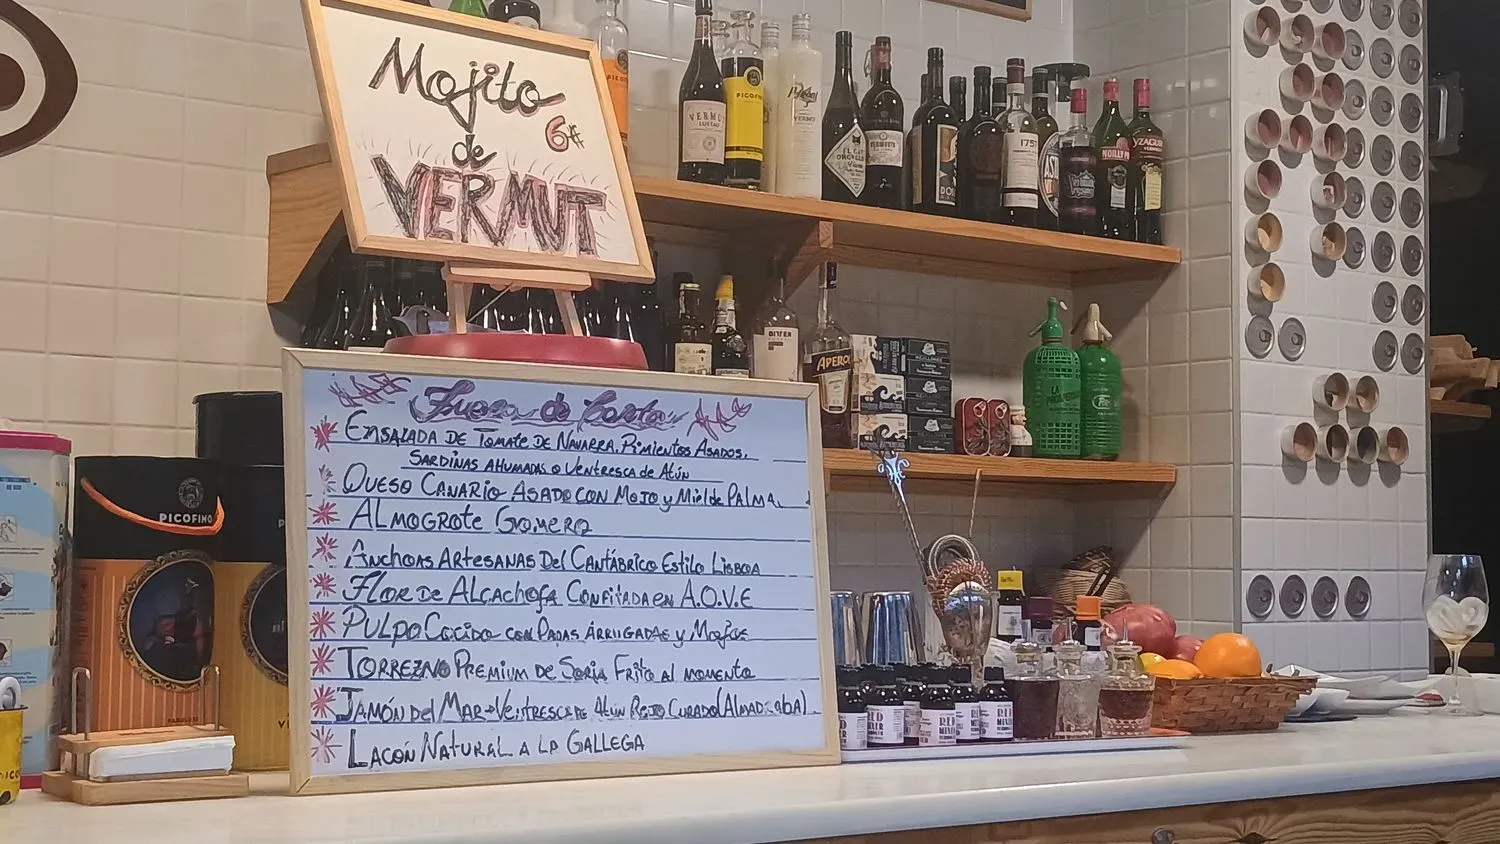 Mojito
6€
de
VERMUT
Fuera de Carta
ENSALADA DE TOMATE DE NAVARRA, PIMIENTOS ASADOS,
SARDINAS AHUMADAS O VENTRESCA de ATÚN
QUESO CANARIO ASADO CON MOJO y Miel de PALMA
ALMOGROTE GOMERO
ANCHOAS ARTESANAS DEL CANTÁBRICO ESTILO LISBOA
FLOR DE ALCACHOFA CONFITADA EN A.O.V.E
PULPO COCIDO CON PAPAS ARRUGADAS y MOJOS
TORREZNO PREMIUM DE SORIA FRITO AL MOMENTO
JAMÓN DEL MAR - VENTRESCA DE ATÚN ROJO CURADO (ALMADRABA)
LACÓN NATURAL A LA GALLEGA
PICOFINO
VERMUT
LUSTAU
PICOFINO
EL GATO
1757
NOILLY PR
YZAGUIR
BITTER
APEROL
LA
RED
MIXER
RED
MIXER
RED
MIXER